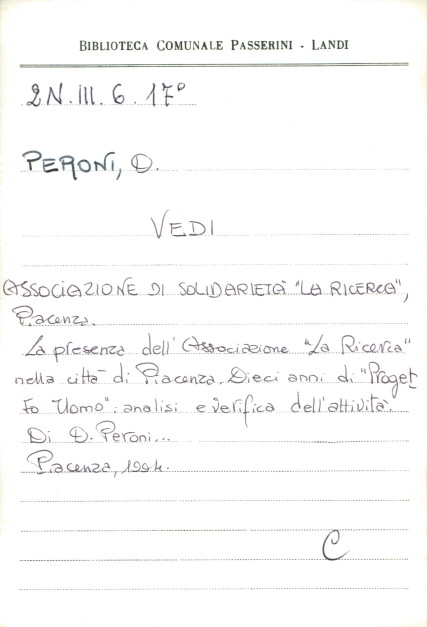 BIBLIOTECA COMUNALE PASSERINI - LANDI
2N.III.6.17°
PERONI, D.
VEDI
ASSOCIAZIONE DI SOLIDARIETÀ "LA RICERCA",
Piacenza.
La presenza dell'Associazione "La Ricerca"
nella città di Piacenza. Dieci anni di "Proget
to Uomo": analisi e verifica dell'attività.
Di D. Peroni...
Piacenza, 1994.
C